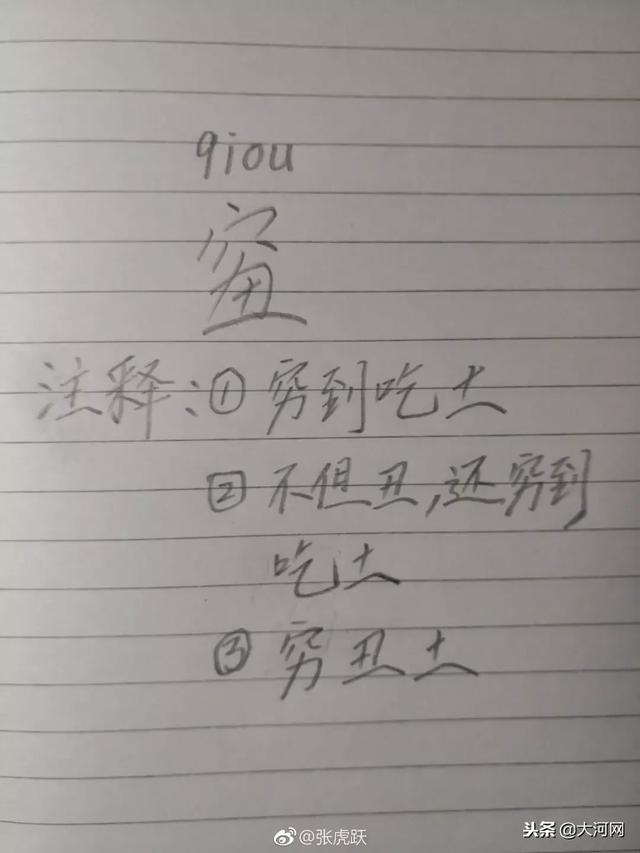 qiou
注释:①穷到吃土
②不但丑,还穷到
吃土
③穷丑土
@张虎跃
头条 @大河网